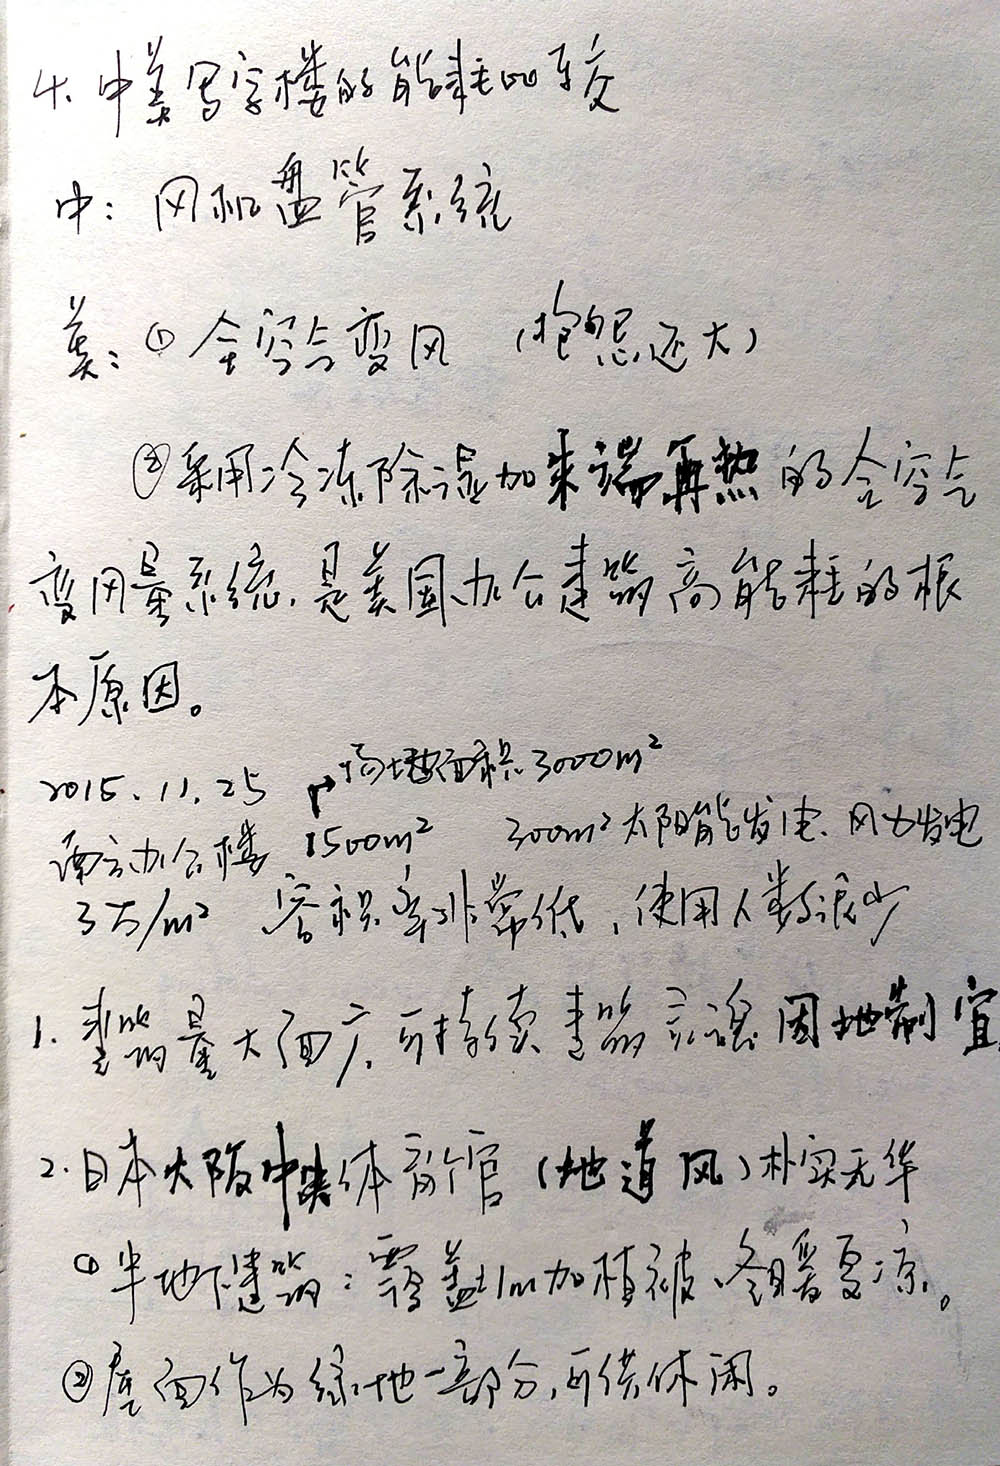 4. 中美写字楼的能耗比较
中: 风机盘管系统
美: ① 全空气变风 (抱怨还大)
②采用冷冻除湿加末端再热的全空气
变风量系统,是美国办公建筑高能耗的根
本原因。
2015.11.25 →墙面积3000m²
办公楼 1500m² 300m²太阳能发电、风力发电
3万/m² 容积率非常低,使用人数很少
1. 建筑量大面广,可持续建筑应该因地制宜.
2. 日本大阪中央体育馆 (地道风) 朴实无华
①半地下建筑: 覆盖土1m加植被,冬暖夏凉。
②屋面作为绿地一部分,可供休闲。